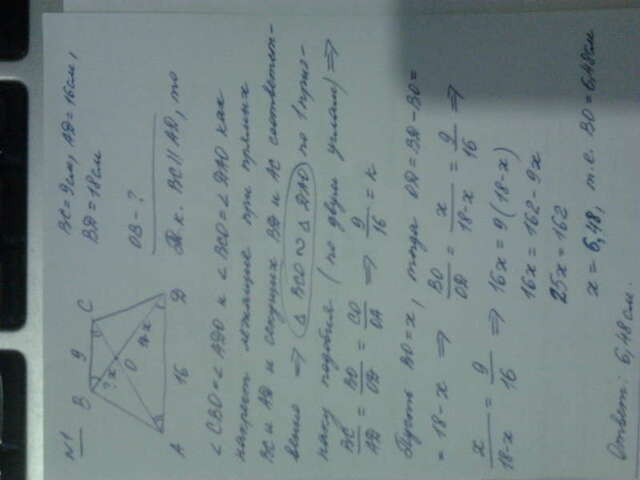 №1
B 9 C
?x
O
18-x
A 16 D
BC=9см, AD=16см,
BD=18см
OB-?
Т.к. BC||AD, то
∠CBO=∠ADO и ∠BCO=∠DAO как
накрест лежащие при прямых
BC и AD и секущих BD и AC соответст-
венно ⇒ △BCO ∾ △DAO по I приз-
наку подобия (по двум углам) ⇒
BC/AD = BO/OD = CO/OA ⇒ 9/16 = k
Пусть BO=x, тогда OD=BD-BO=
=18-x ⇒ BO/OD = x/18-x = 9/16 ⇒
x/18-x = 9/16 ⇒ 16x=9(18-x)
16x=162-9x
25x=162
x=6,48, т.е. BO=6,48см
Ответ: 6,48см.